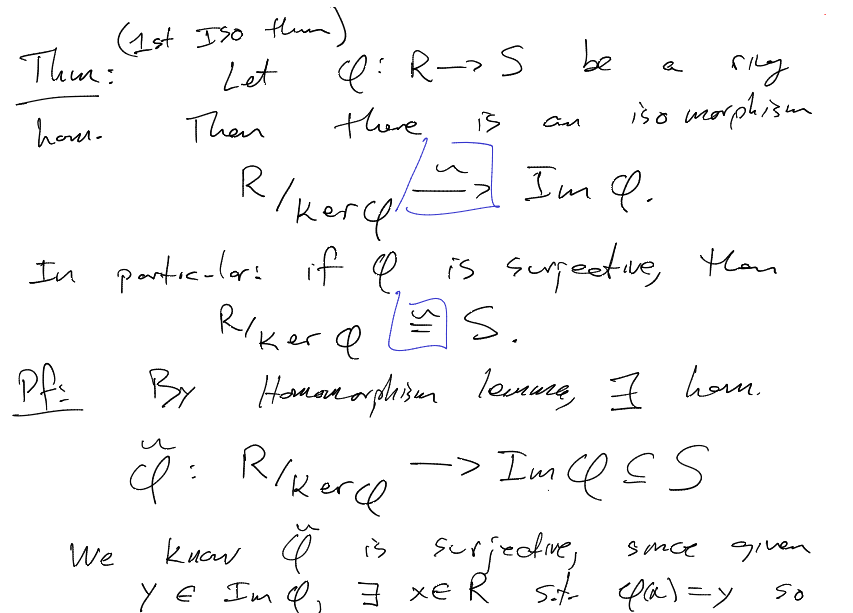 (1st Iso thm)
Thm: Let φ: R → S be a ring
hom. Then there is an isomorphism
R/Ker φ ⥲ Im φ.
In particular: if φ is surjective, then
R/Ker φ ≅ S.
Pf: By Homomorphism lemma, ∃ hom.
φ̃ : R/Ker φ → Im φ ⊆ S
We know φ̃ is surjective, since given
y ∈ Im φ, ∃ x ∈ R s.t. φ(x) = y so